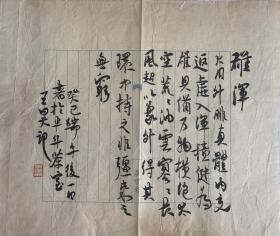 雄渾
大用外腓真體內充
返虛入渾積健為
雄具備萬物橫絕太
空荒〻油雲寥〻長
風超以象外得其
環中持之匪強來之
無窮
癸巳端午後一日
書於茶室